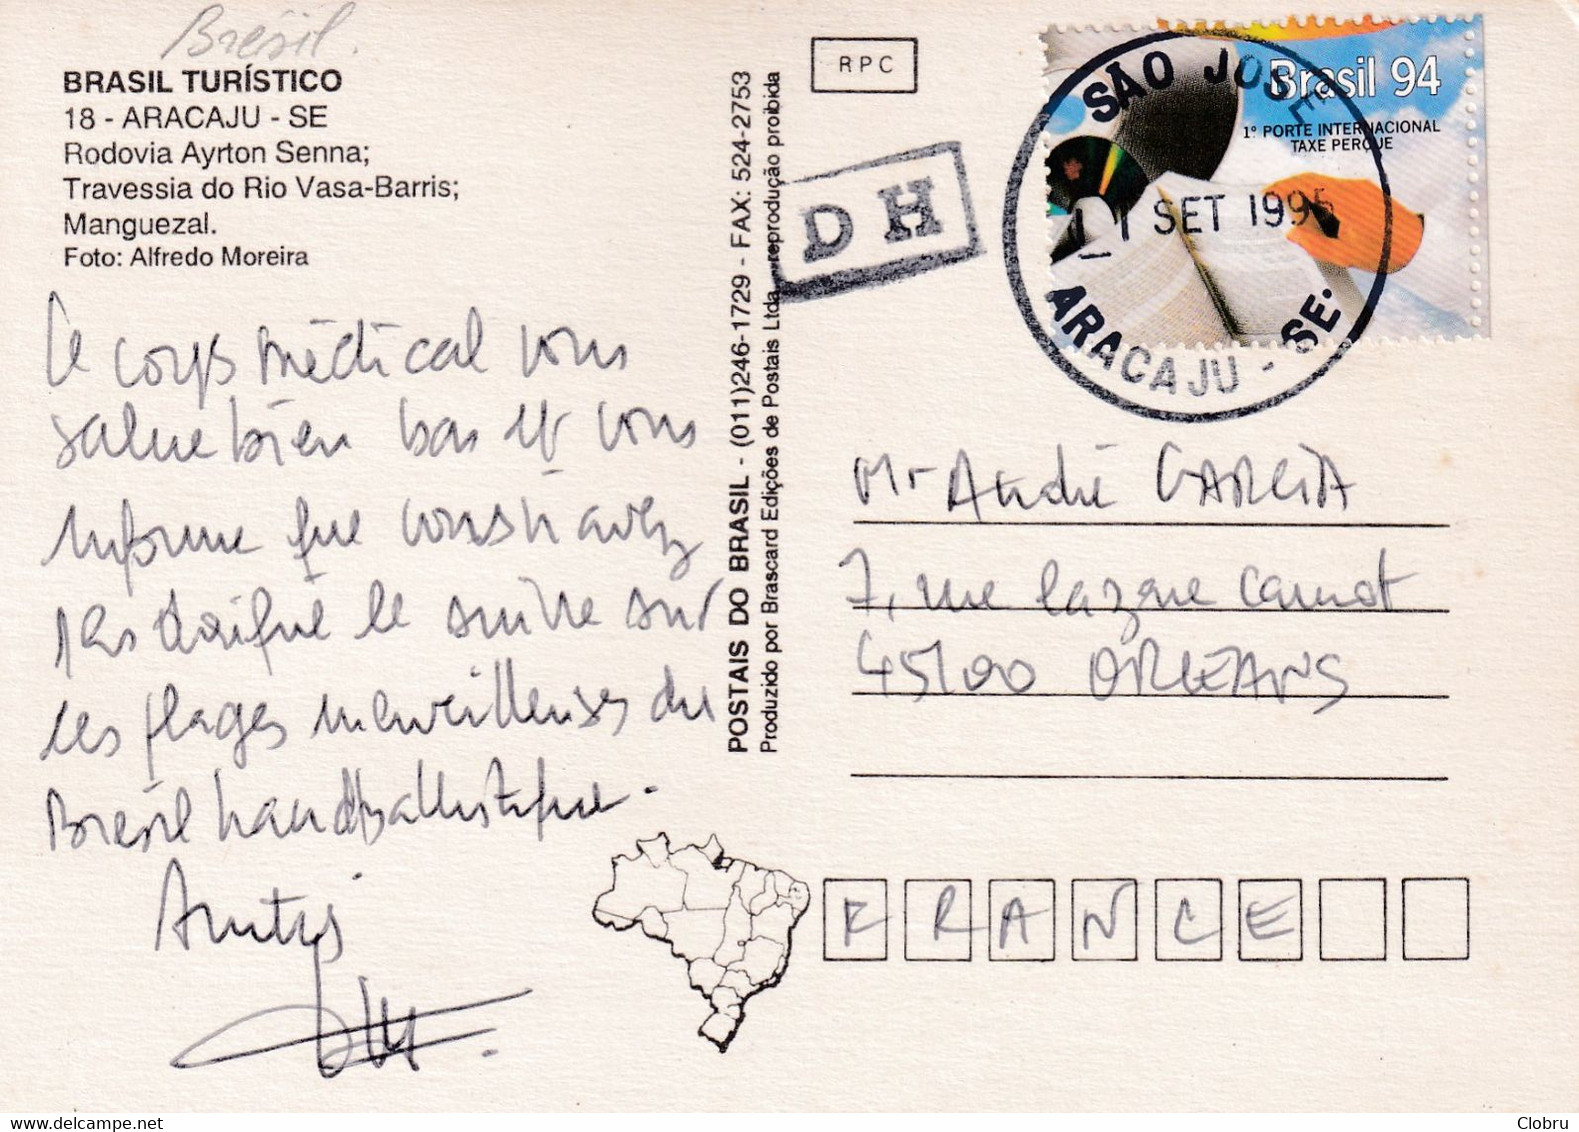 Brésil.
BRASIL TURÍSTICO
18 - ARACAJU - SE
Rodovia Ayrton Senna;
Travessia do Rio Vasa-Barris;
Manguezal.
Foto: Alfredo Moreira
Le corps médical vous
salue bien bas et vous
informe que vous n'avez
pas daigné le suivre sur
les plages merveilleuses du
Brésil handballistique.
Amitiés
POSTAIS DO BRASIL - (011)246-1729 - FAX: 524-2753
Produzido por Brascard Edições de Postais Ltda. reprodução proibida
RPC
DH
Brasil 94
1º PORTE INTERNACIONAL
TAXE PERÇUE
SÃO JOSE
11 SET 1995
ARACAJU - SE.
Mr André GARCIA
7, rue Lazare Carnot
45100 ORLEANS
FRANCE
Clobru